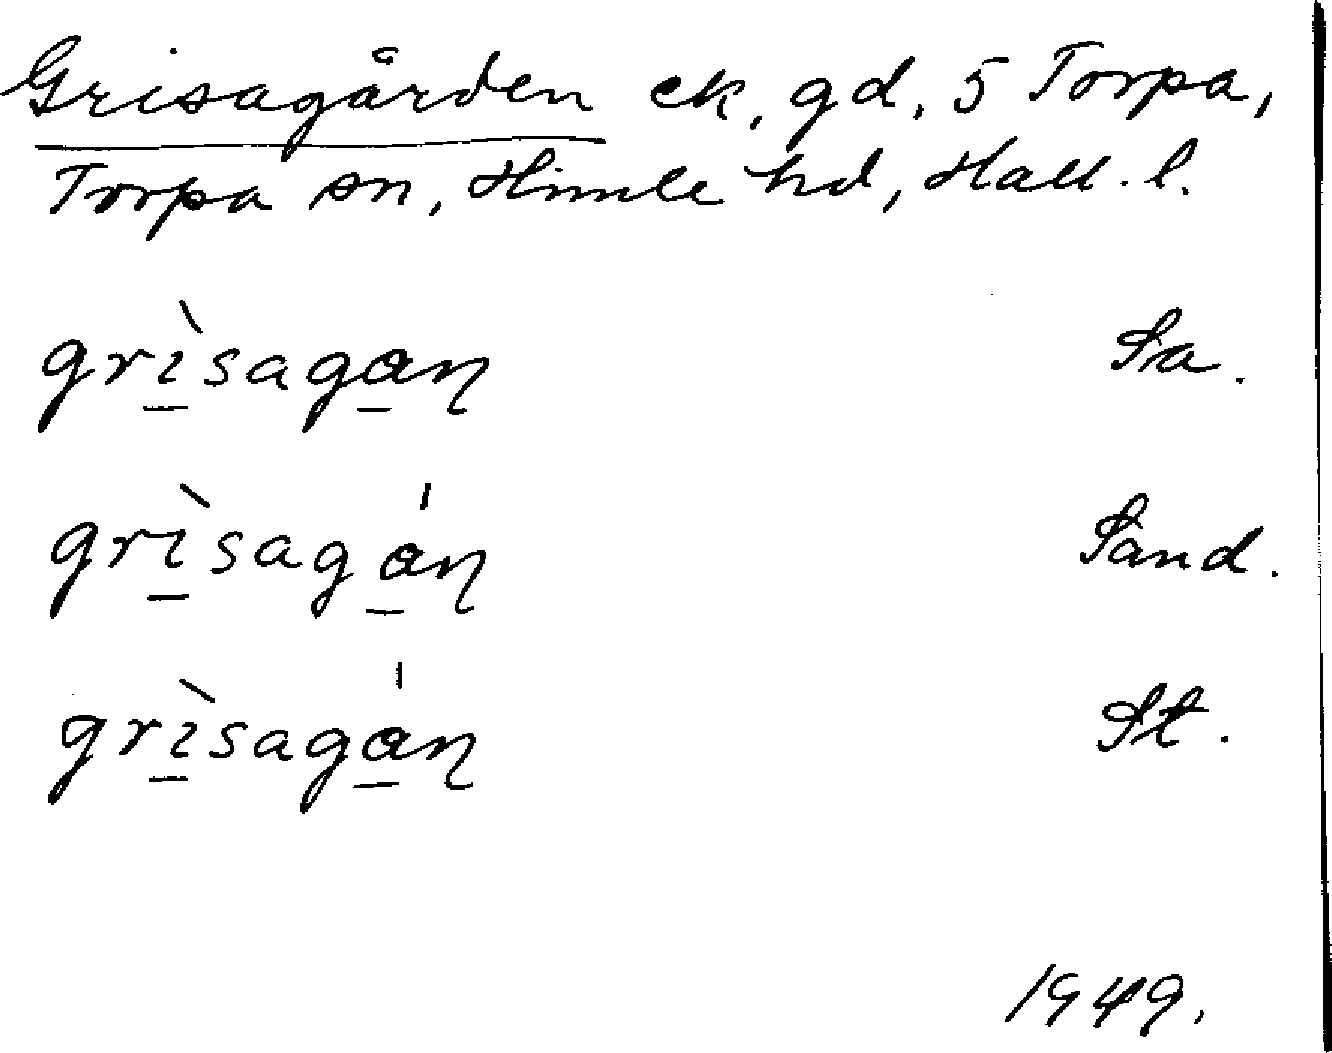 Grisagården ek, gd, 5 Torpa,
Torpa sn, Himle hd, Hall. l.
grı̀sagaɳ Sa.
grı̀sagáɳ Sand.
grı̀sagáɳ St.
1949.